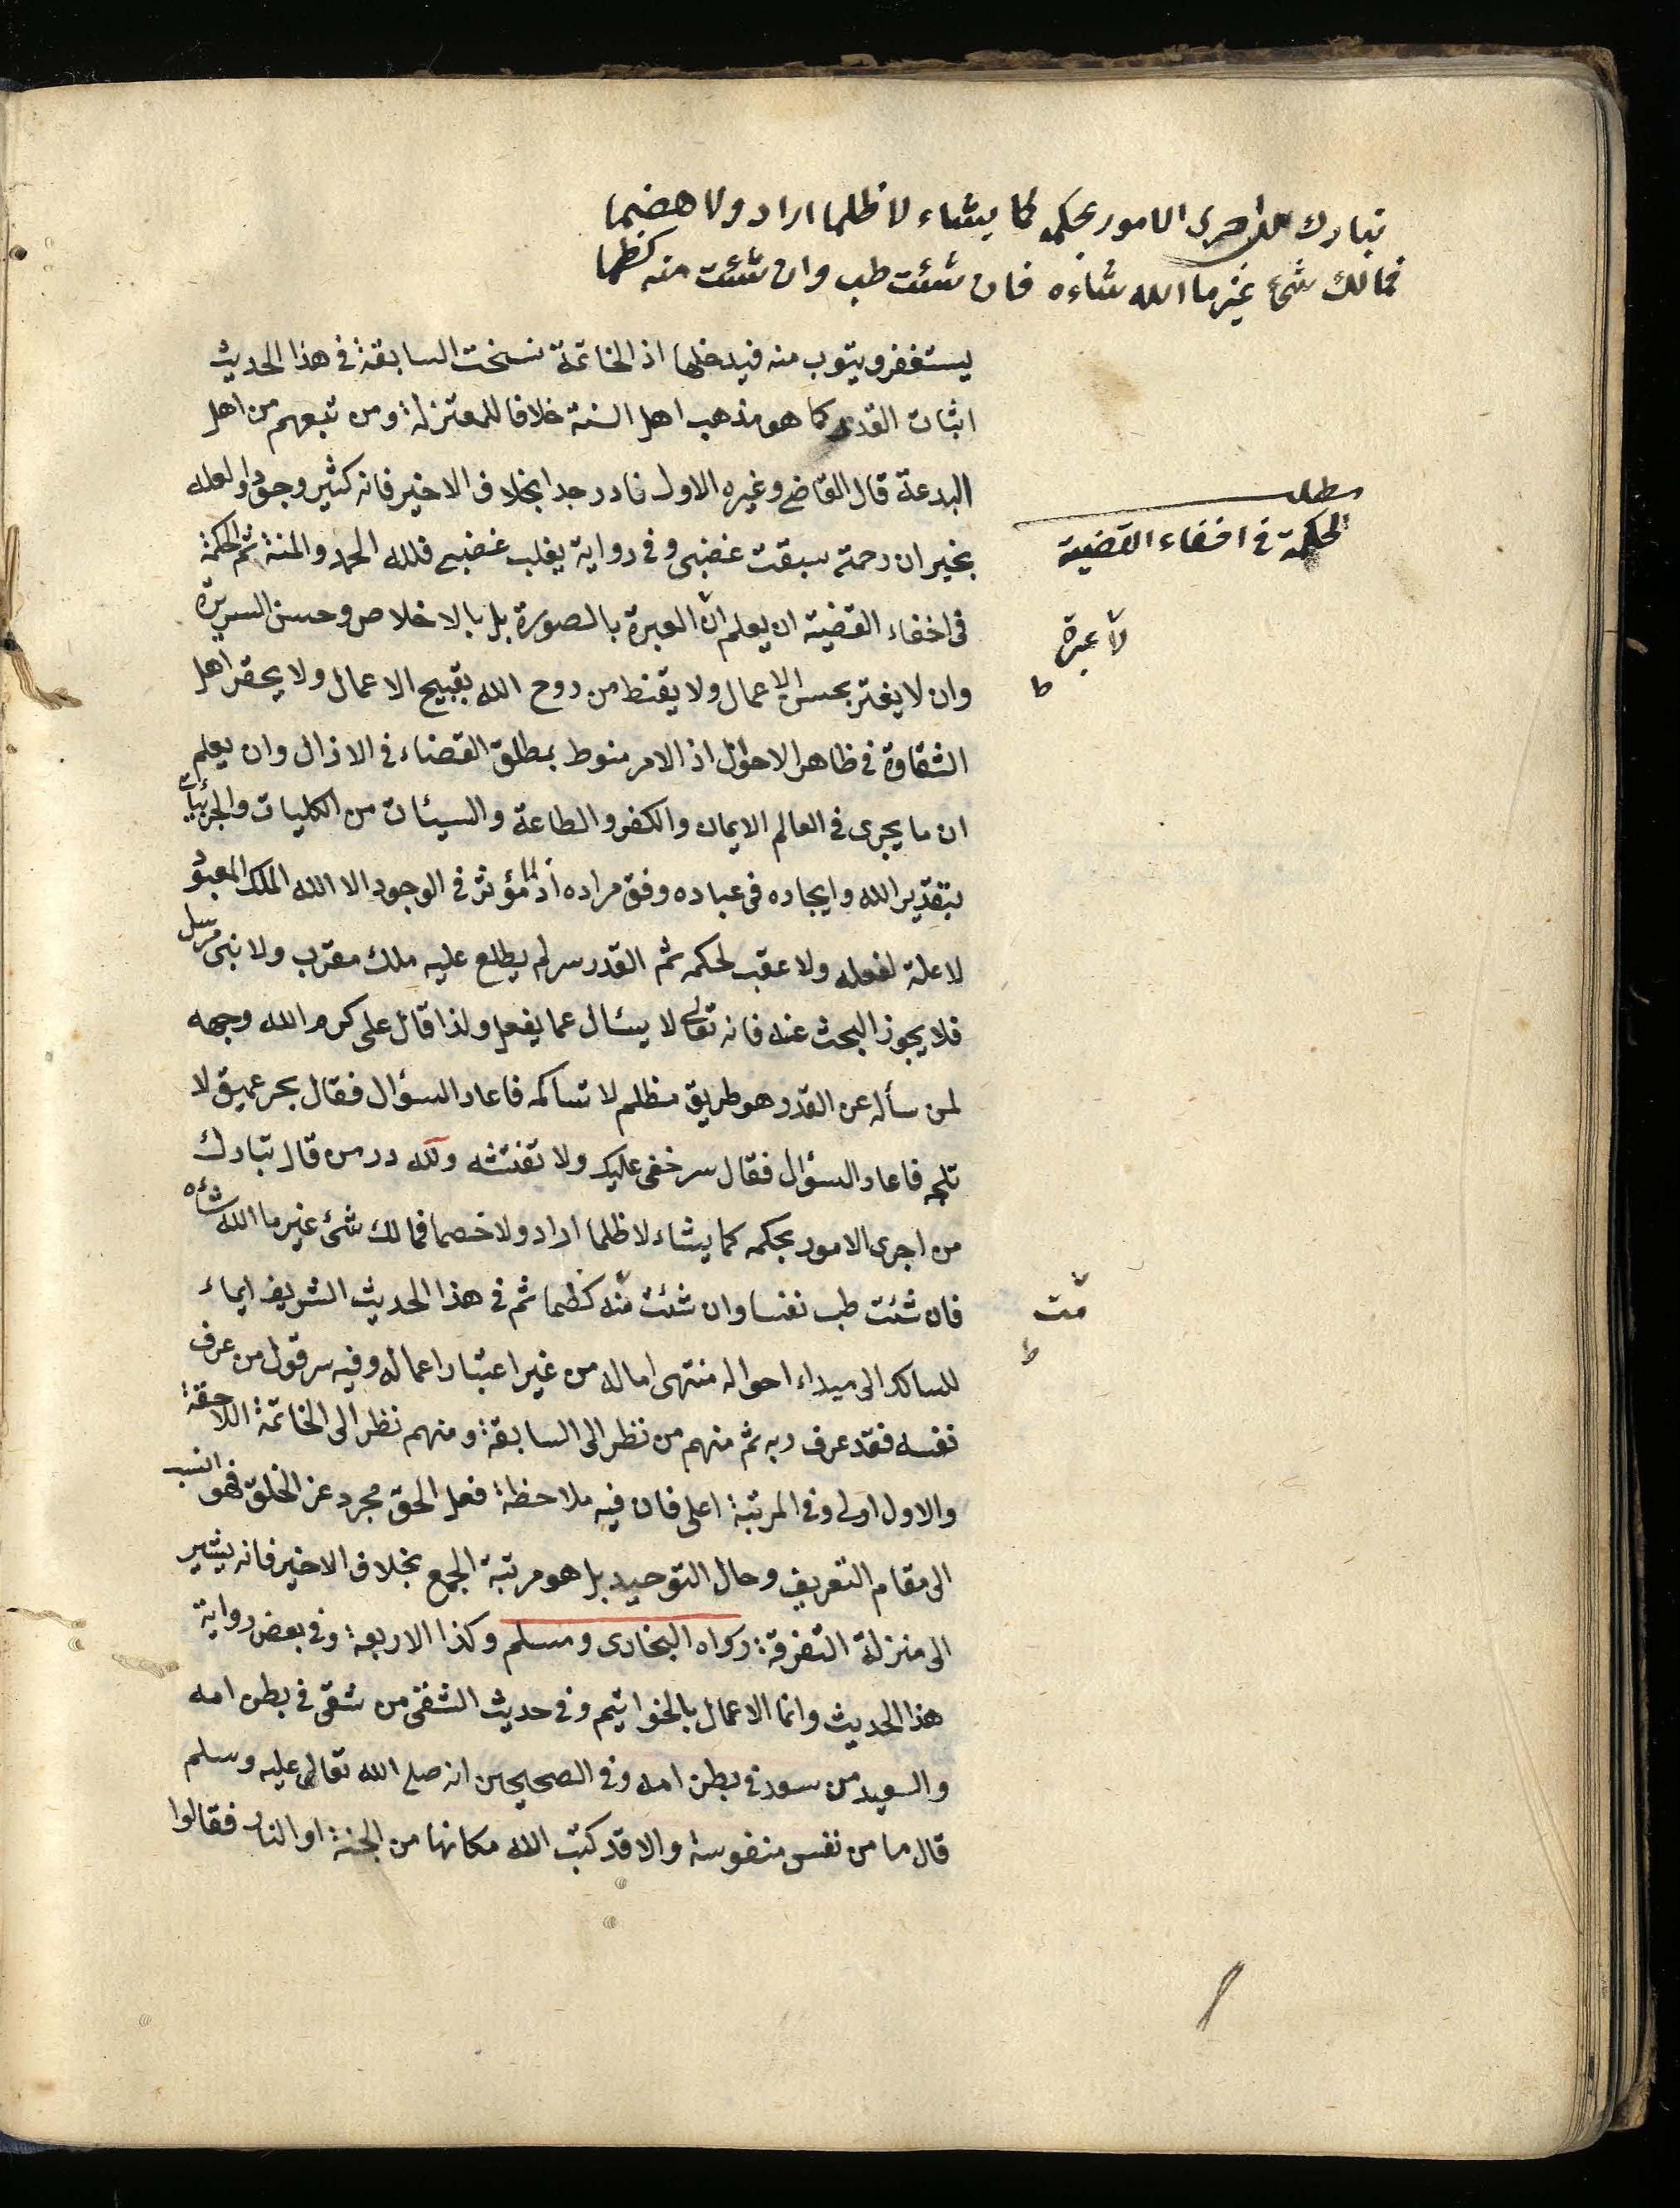 تبارك من اجرى الامور بحكمه كما يشاء لا ظلما اراد ولا هضما
فمالك شئ غير ما الله شاءه فان شئت طب وان شئت منه كظما
يستغفر ويتوب منه فيدخلها اذ الخاتمة نسخت السابقة في هذا الحديث
اثبات القدر كما هو مذهب اهل السنة خلافا للمعتزلة ومن تبعهم من اهل
البدعة قال القاضي وغيره الاول نادر جدا بخلاف الاخير فانه كثير وجودا ولعله
مطلب
الحكمة في اخفاء القضية
بخير ان رحمته سبقت غضبى وفى رواية يغلب غضبى فلله الحمد والمنة ثم الحكمة
فى اخفاء القضية ان يعلم ان العبرة بالصورة بل بالاخلاص وحسن السريرة
لا عبرة
ط
وان لا يغتر بحسن الاعمال ولا يقنط من روح الله بقبيح الاعمال ولا يحقر اهل
الشقاوة في ظاهر الاحوال اذ الامر منوط بمطلق القضاء في الازال وان يعلم
ان ما يجرى فى العالم الايمان والكفر والطاعة والسيئات من الكليات والجزئيات
بتقدير الله وايجاده فى عباده وفق مراده اذ لا مؤثر فى الوجود الا الله الملك المعبود
لا علة لفعله ولا عقب لحكمه ثم القدر سر لم يطلع عليه ملك مقرب ولا نبى مرسل
فلا يجوز البحث عنه فانه تعالى لا يسئال عما يفعل ولذا قال على كرم الله وجهه
لمن سأله عن القدر وهو طريق مظلم لا تسالكه فاعاد السؤال فقال بحر عميق لا
تلجه فاعاد السؤال فقال سر خفى عليك ولا تفتشه ولله در من قال تبارك
من اجرى الامور بحكمه كما يشاء لا ظلما اراد ولا خصما فمالك شئ غير ما الله شاءه
فان شئت طب نفسا وان شئت منه كظما ثم فى هذا الحديث الشريف ايماء
مت
ط
للسالك الى ميداء احواله منتهى اماله من غير اعتبار اعماله وفيه سر قول من عرف
نفسه فقد عرف ربه ثم منهم من نظر الى السابقة ومنهم نظر الى الخاتمة اللاحقة
والاول اولى وفى المرتبة اعلى فان فيه ملاحظة فعل الحق مجرد عن الخلق فهو انسب
الى مقام التفريف وحال التوحيد بل هو مرتبة الجمع بخلاف الاخير فانه يشير
الى منزلة التفرقة رواه البخارى ومسلم وكذا الاربعة وفى بعض رواية
هذا الحديث وانما الاعمال بالخواتيم وفى حديث الشقى من شقى فى بطن امه
والسعيد من سعد فى بطن امه وفى الصحيحين انه صلى الله تعالى عليه وسلم
قال ما من نفس منفوسة والا قد كتب الله مكانها من الجنة او النار فقالوا